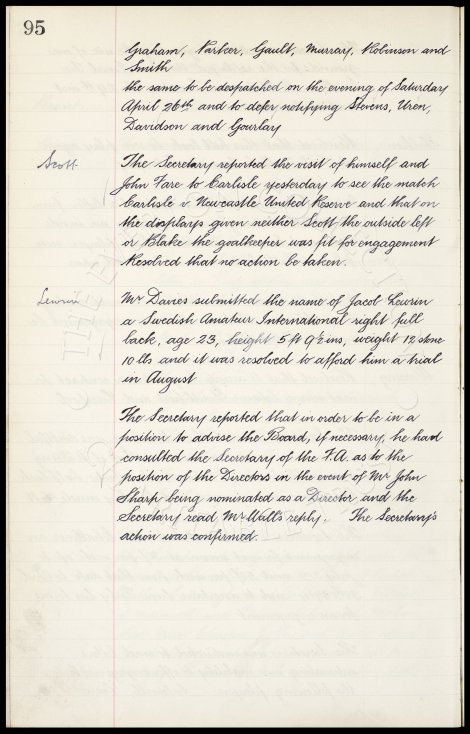 95
Graham, Parker, Gault, Murray, Robinson and
Smith
the same to be despatched on the evening of Saturday
April 26th and to defer notifying Stevens, Uren,
Davidson and Gourlay
Scott
The Secretary reported the visit of himself and
John Fare to Carlisle yesterday to see the match
Carlisle v Newcastle United Reserve and that on
the displays given neither Scott the outside left
or Blake the goalkeeper was fit for engagement
Resolved that no action be taken.
Lewrin
Mr Davies submitted the name of Jacob Lewrin
a Swedish Amateur International right full
back, age 23, height 5 ft 9½ ins, weight 12 stone
10 lbs and it was resolved to afford him a trial
in August
The Secretary reported that in order to be in a
position to advise the Board, if necessary, he had
consulted the Secretary of the F.A. as to the
position of the Directors in the event of Mr John
Sharp being nominated as a Director and the
Secretary read Mr Wall's reply. The Secretary's
action was confirmed.